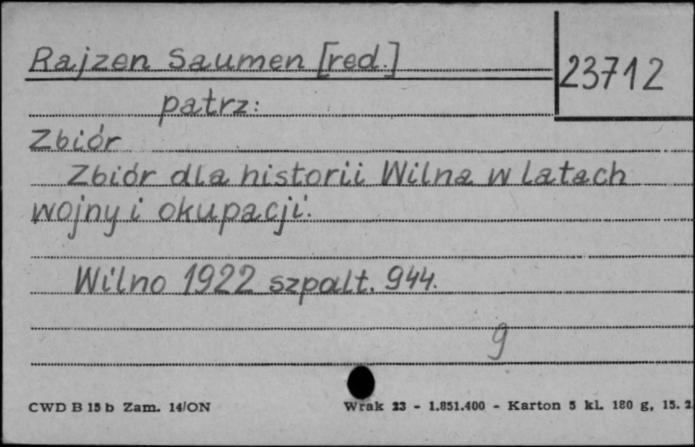 Rajzen Saumen [red.]
23712
patrz:
Zbiór
Zbiór dla historii Wilna w latach
wojny i okupacji.
Wilno 1922 szpalt. 944.
g
CWD B 15 b Zam. 14/ON
Wrak 23 - 1.851.400 - Karton 5 kl. 180 g, 15. 2